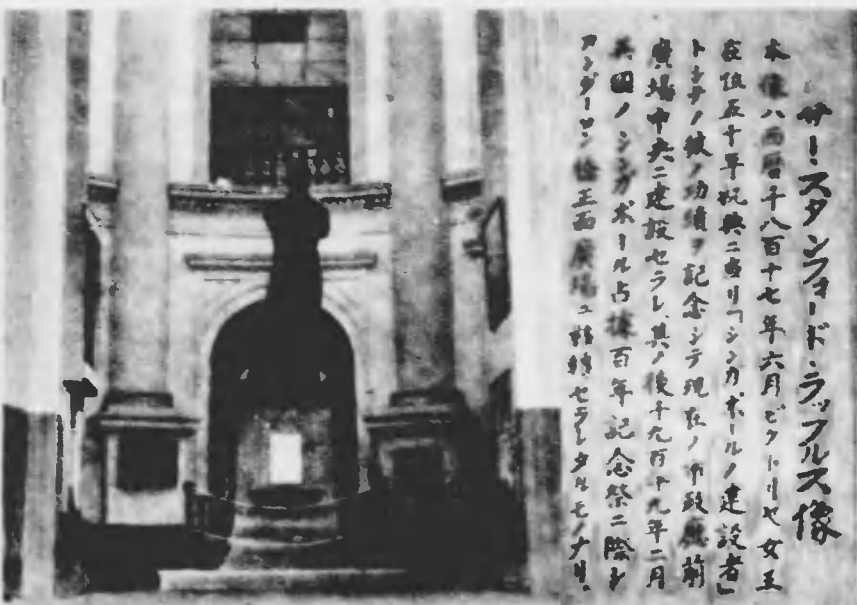 サー・スタンフォード・ラッフルス像
本像ハ西暦千八百十七年六月ビクトリヤ女王
在位五十年祝典ニ当リ「シンガポールノ建設者」
トシテノ彼ノ功績ヲ記念シテ現在ノ市政廳前
廣場中央ニ建設セラレ、其ノ後千九百十九年二月
英國ノシンガポール占據百年記念祭ニ際シ
アンダーソン橋正面廣場ニ移轉セラレタルモノナリ。